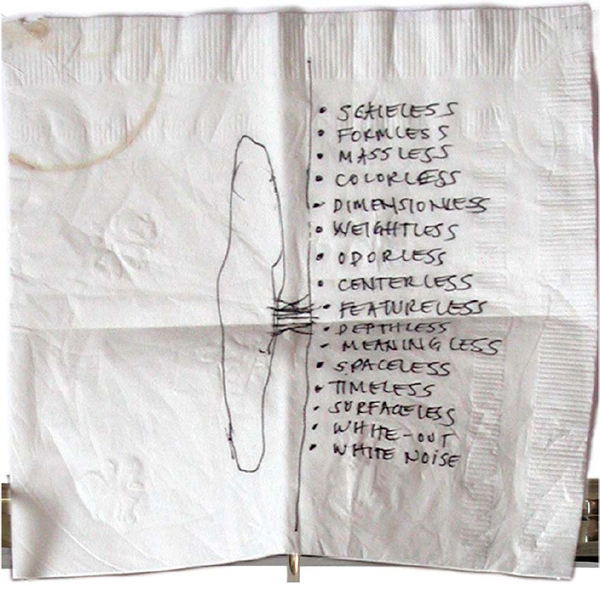 • SCALELESS
• FORMLESS
• MASSLESS
• COLORLESS
- DIMENSIONLESS
• WEIGHTLESS
• ODORLESS
• CENTERLESS
• FEATURELESS
• DEPTHLESS
- MEANINGLESS
• SPACELESS
• TIMELESS
• SURFACELESS
• WHITE-OUT
• WHITE NOISE